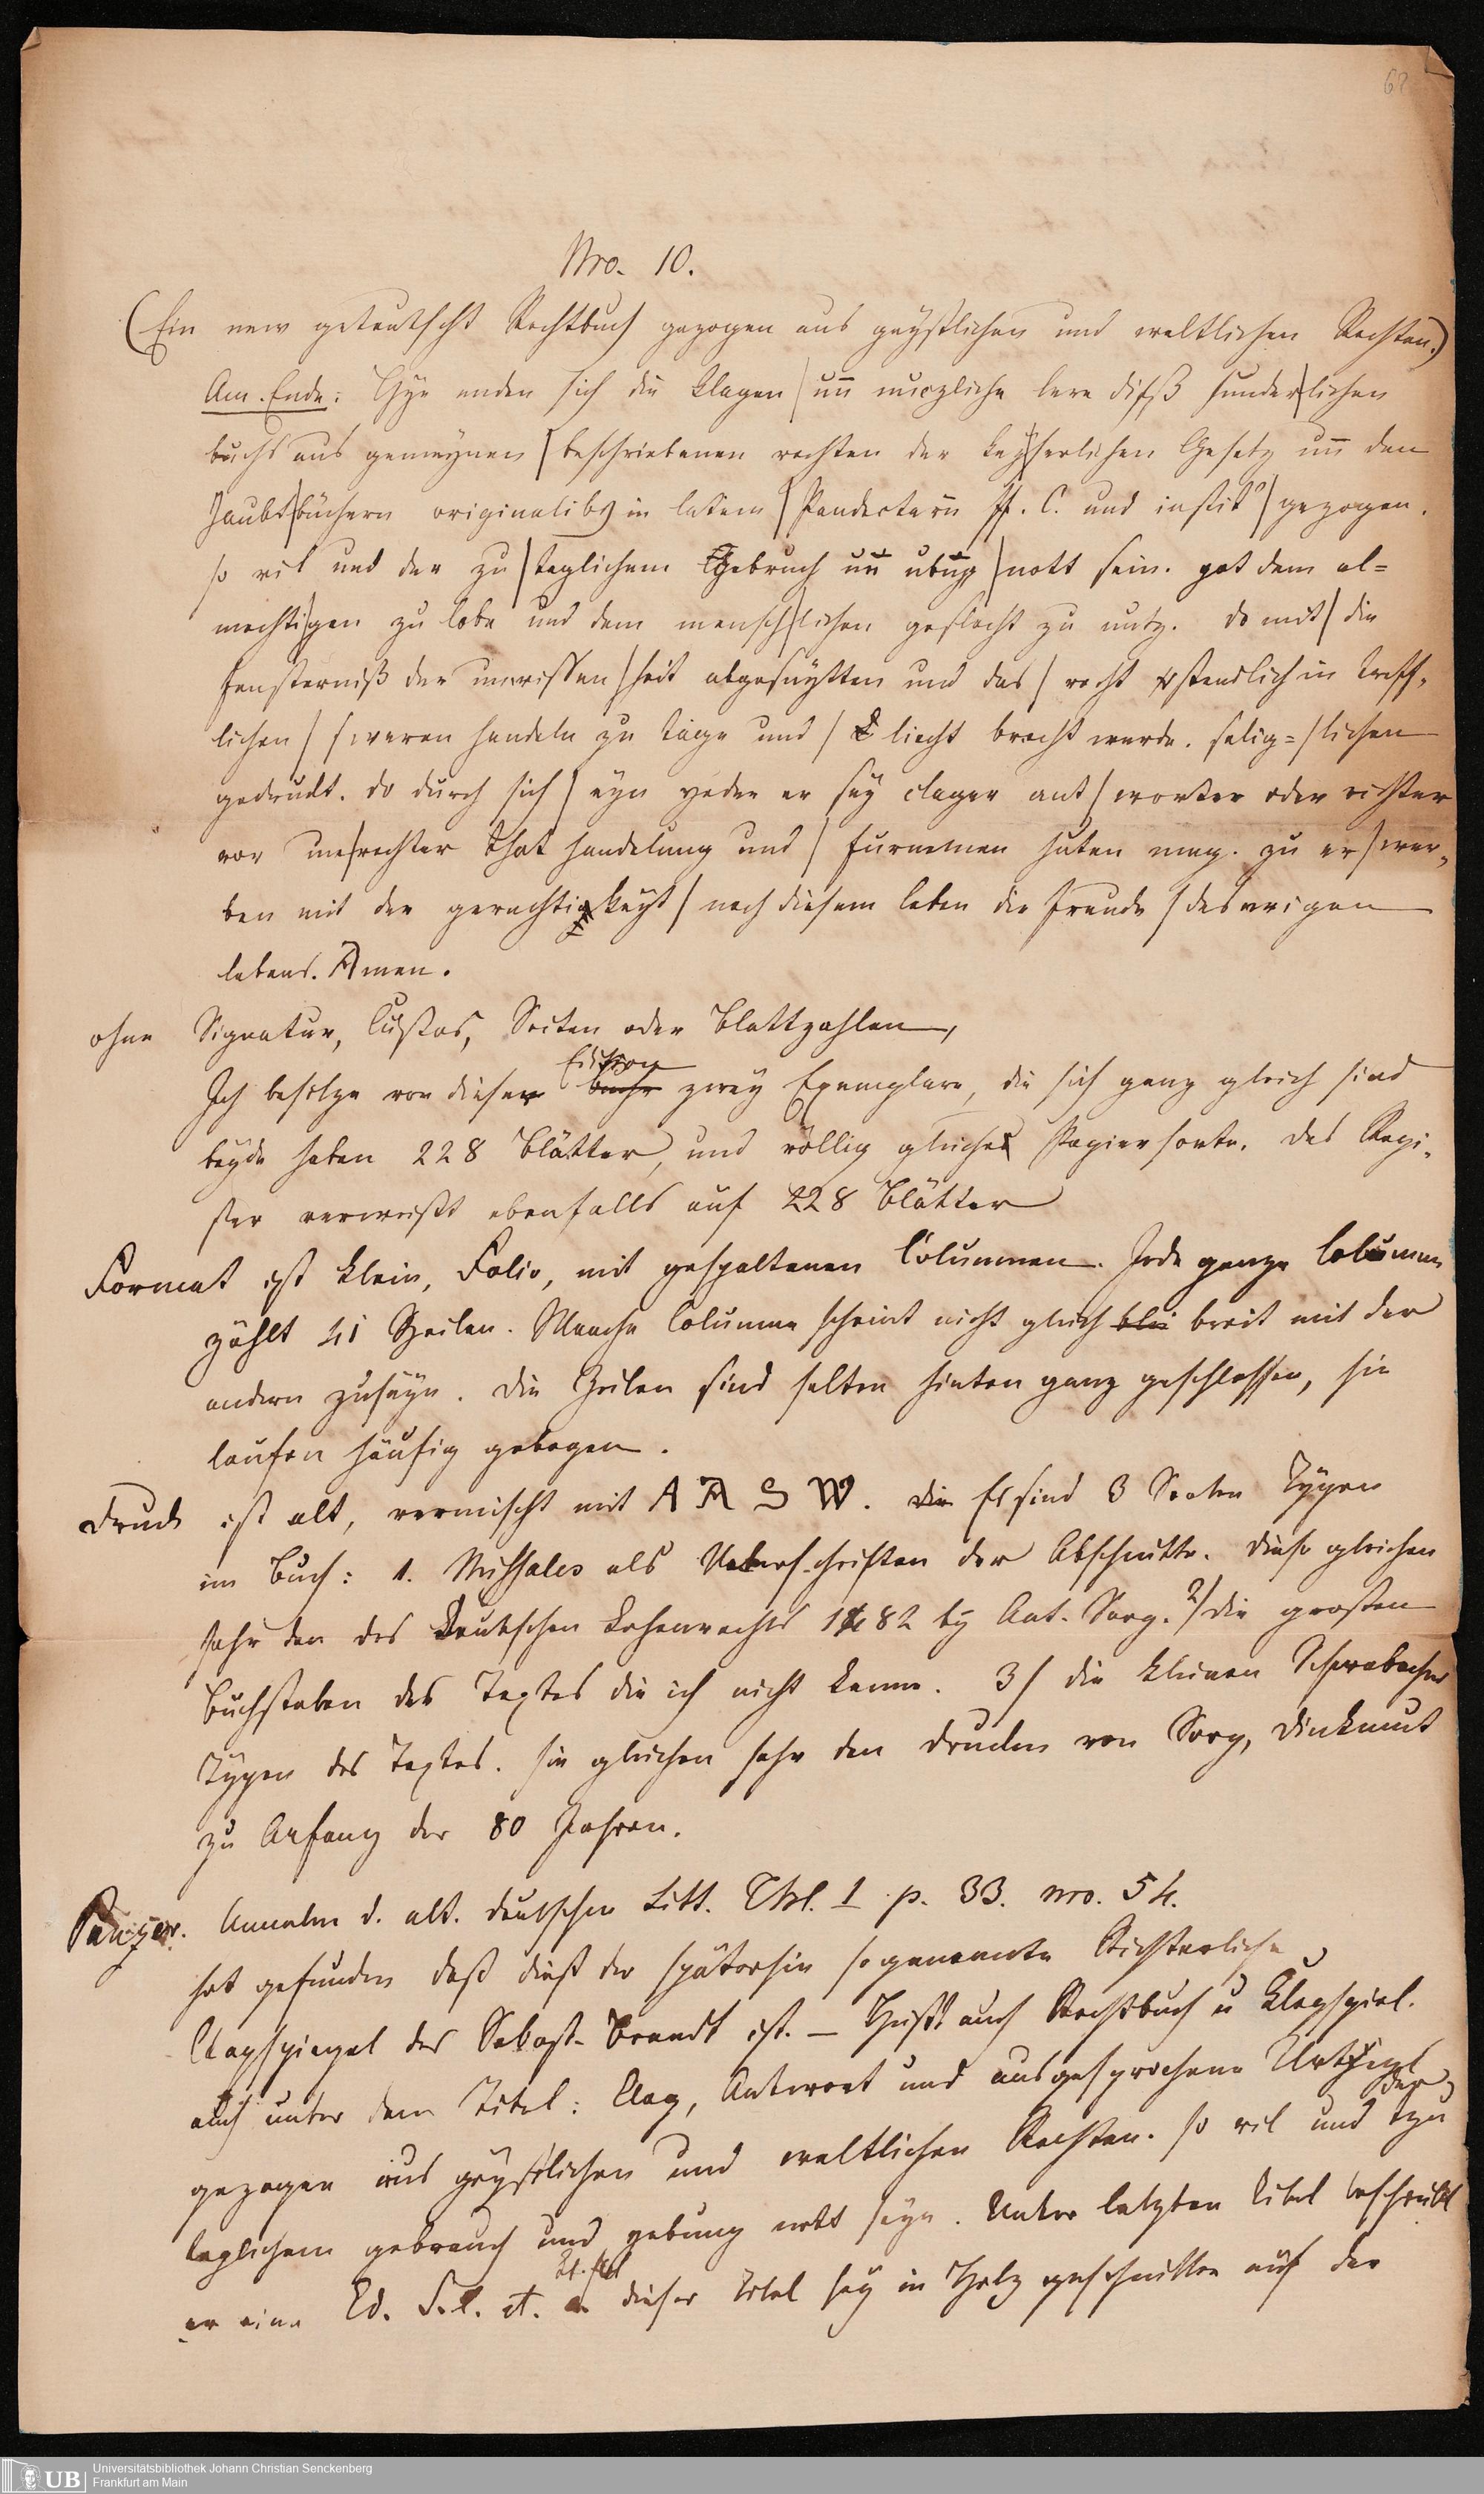 62
Nro. 10.
(Ein new geteutscht Rechtbuch gezogen aus geystlichen und weltlichen Rechten.)
Am Ende: Hye enden sich die klagen | uñ nuczliche lere diß sunder|lichen
buchs aus gemeynen | beschriebenen rechten der key|serlichen Gesetz uñ den
haubt|büchern originalibꝫ in latein | Pandectarũ ff. C. und instit° | gezogen.
so vil und der zu | teglichem Gebruch uñ ubũg | nott sein. got dem al=
mechti|gen zu lobe und dem mensch|lichen geslecht zu nutz. do mit | die
fensterniß der unwissen | heit abgesnytten und das | recht verstendlich in treff,
lichen | sweren handeln zu tage und | liecht bracht werde. selig= | lichen
gedruckt. do durch sich | eyn yeder er sey clager ant | worter oder richter
vor une|rechter that handelung und | furnemen huten mag. zu er | wer,
ben mit der gerechtigkeyt | nach diesem leben die freude | des ewigen
lebens. Amen.
ohne Signatur, Custos, Seiten oder Blattzahlen,
Edition
Ich besitze von dieser zwey Exemplare, die sich ganz gleich sind
beyde haben 228 Blätter, und völlig gleiche Papiersorte. Das Regi,
ster verweißt ebenfalls auf 228 Blätter
Format ist klein, Folio, mit gespaltenen Columnen. Jede ganze Columne
zählt 41 Zeilen. Manche Columne scheint nicht gleich breit mit der
andern zuseyn. Die Zeilen sind selten hinten ganz geschlossen, sie
laufen häufig gebogen.
Druck ist alt, vermischt mit A A S W. Es sind 3 Sorten Typen
im Buch: 1. Missales als Ueberschriften der Abschnitte. diese gleichen
sehr den des deutschen Lehenrechts 1482 by Ant. Sorg. 2/ die großen
Buchstaben des Textes die ich nicht kenne. 3/ die kleinen Schwabacher
Typen des Textes. sie gleichen sehr den Drucken von Sorg, Dinkmut
zu Anfang der 80 Jahren.
Panzer. Annalen d. alt. deutschen Litt. Thl. 1 p. 33. nro. 54.
hat gefunden daß dieß der späterhin sogenannte Richterliche
Clagspiegel des Sebast. Brandt ist. – Heißt auch Rechtbuch u Klagspiel.
auch unter dem Titel: Clag, Antwort und ausgesprochene Urtheyl
gezogen aus geystlichen und weltlichen Rechten. so vil und der zu
teglichem gebrauch und yebung nott seyn. Unter letzten Titel beschreibt
er eine Ed. S. l. et. a dieser Titel sey in Holz geschnitten auf der
UB Universitätsbibliothek Johann Christian Senckenberg
Frankfurt am Main